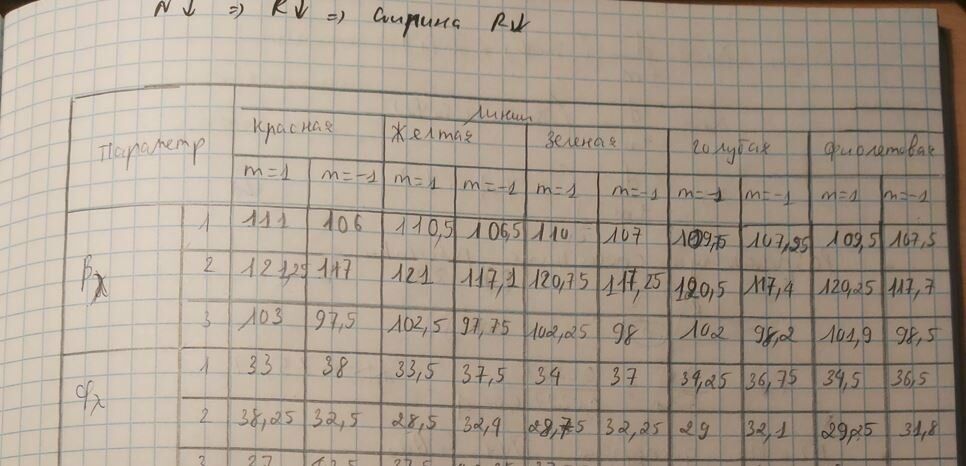 N↓ => R↓ => ширина R↓
Линии
Параметр Красная Желтая Зеленая Голубая Фиолетовая
m=1 m=-1 m=1 m=-1 m=1 m=-1 m=-1 m=-1 m=1 m=-1
βλ 1 111 106 110,5 106,5 110 107 109,75 107,25 109,5 107,5
2 121,25 117 121 117,1 120,75 117,25 120,5 117,4 120,25 117,7
3 103 97,5 102,5 97,75 102,25 98 102 98,2 101,9 98,5
φλ 1 33 38 33,5 37,5 34 37 34,25 36,75 34,5 36,5
2 38,25 32,5 28,5 32,4 28,75 32,25 29 32,1 29,25 31,8